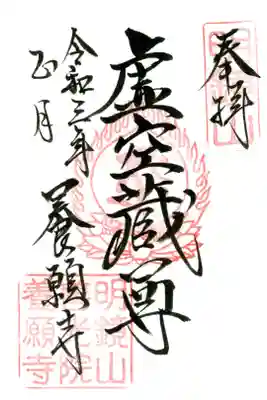 奉拝
虚空蔵尊
令和三年
正月
養願寺
明鏡山
光院
養願寺